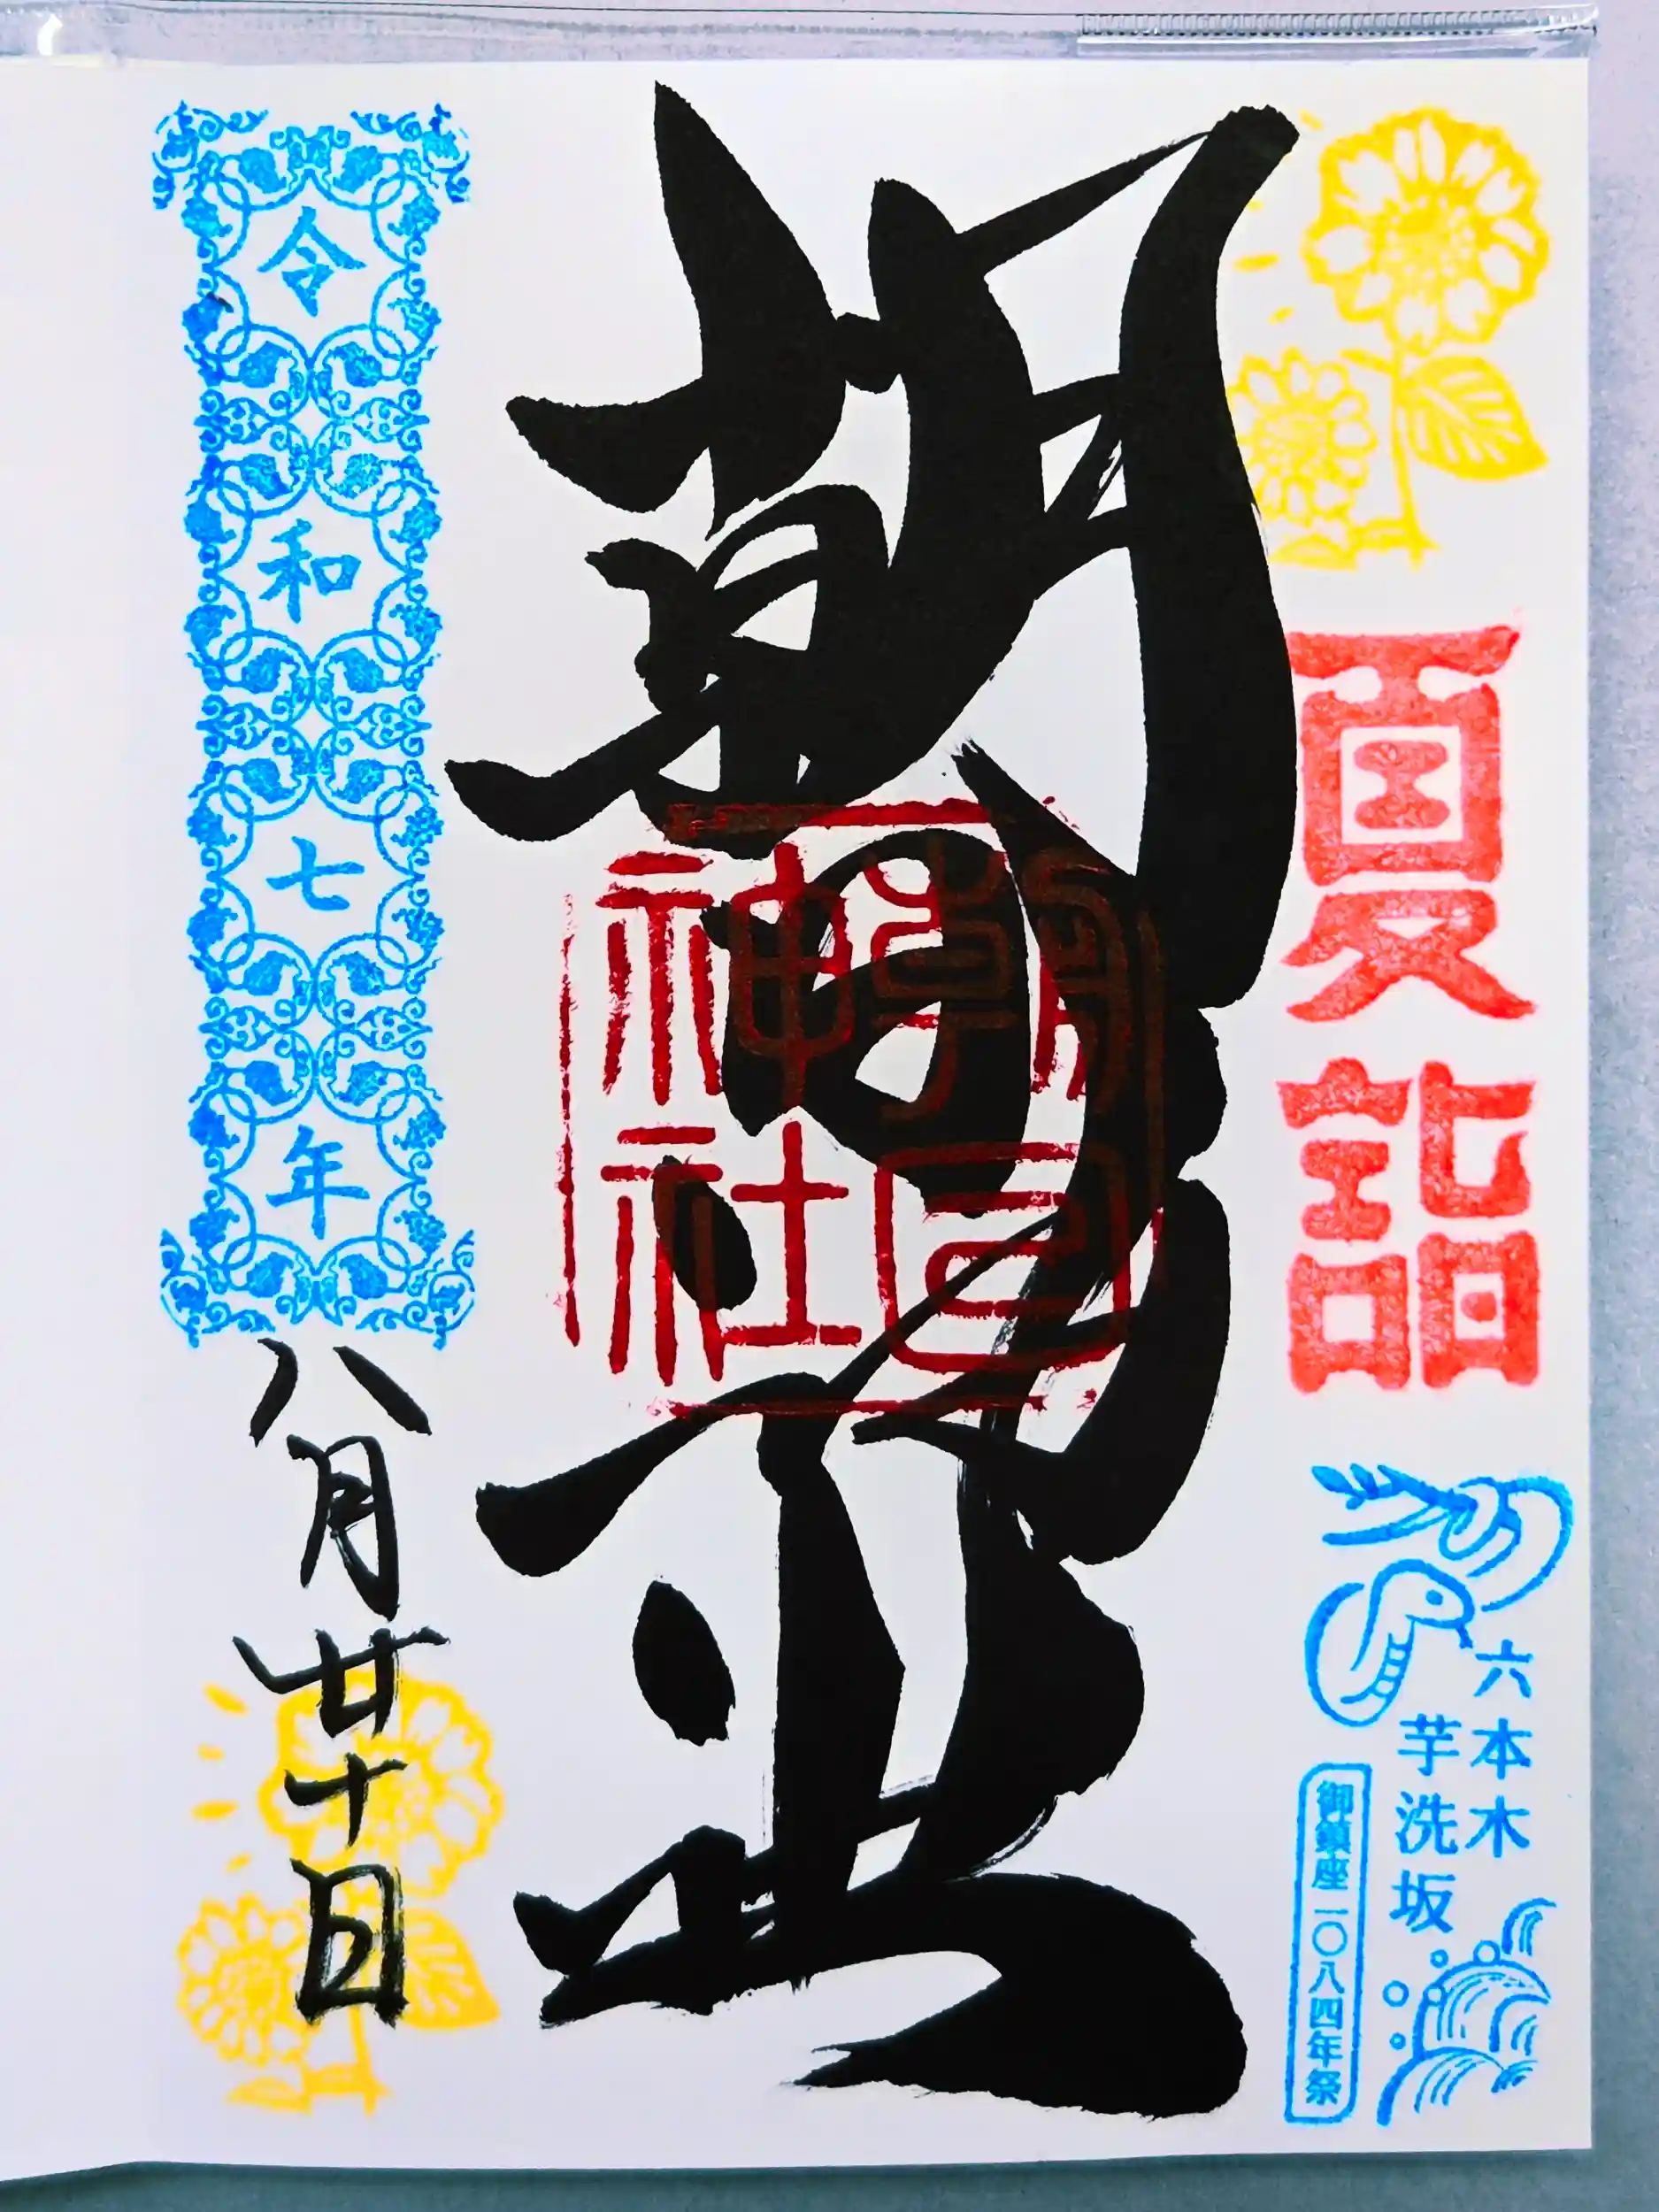 夏詣
六本木
芋洗坂
御鎮座一〇八四年祭
朝日神社
朝日
神社
令和七年
八月廿十日